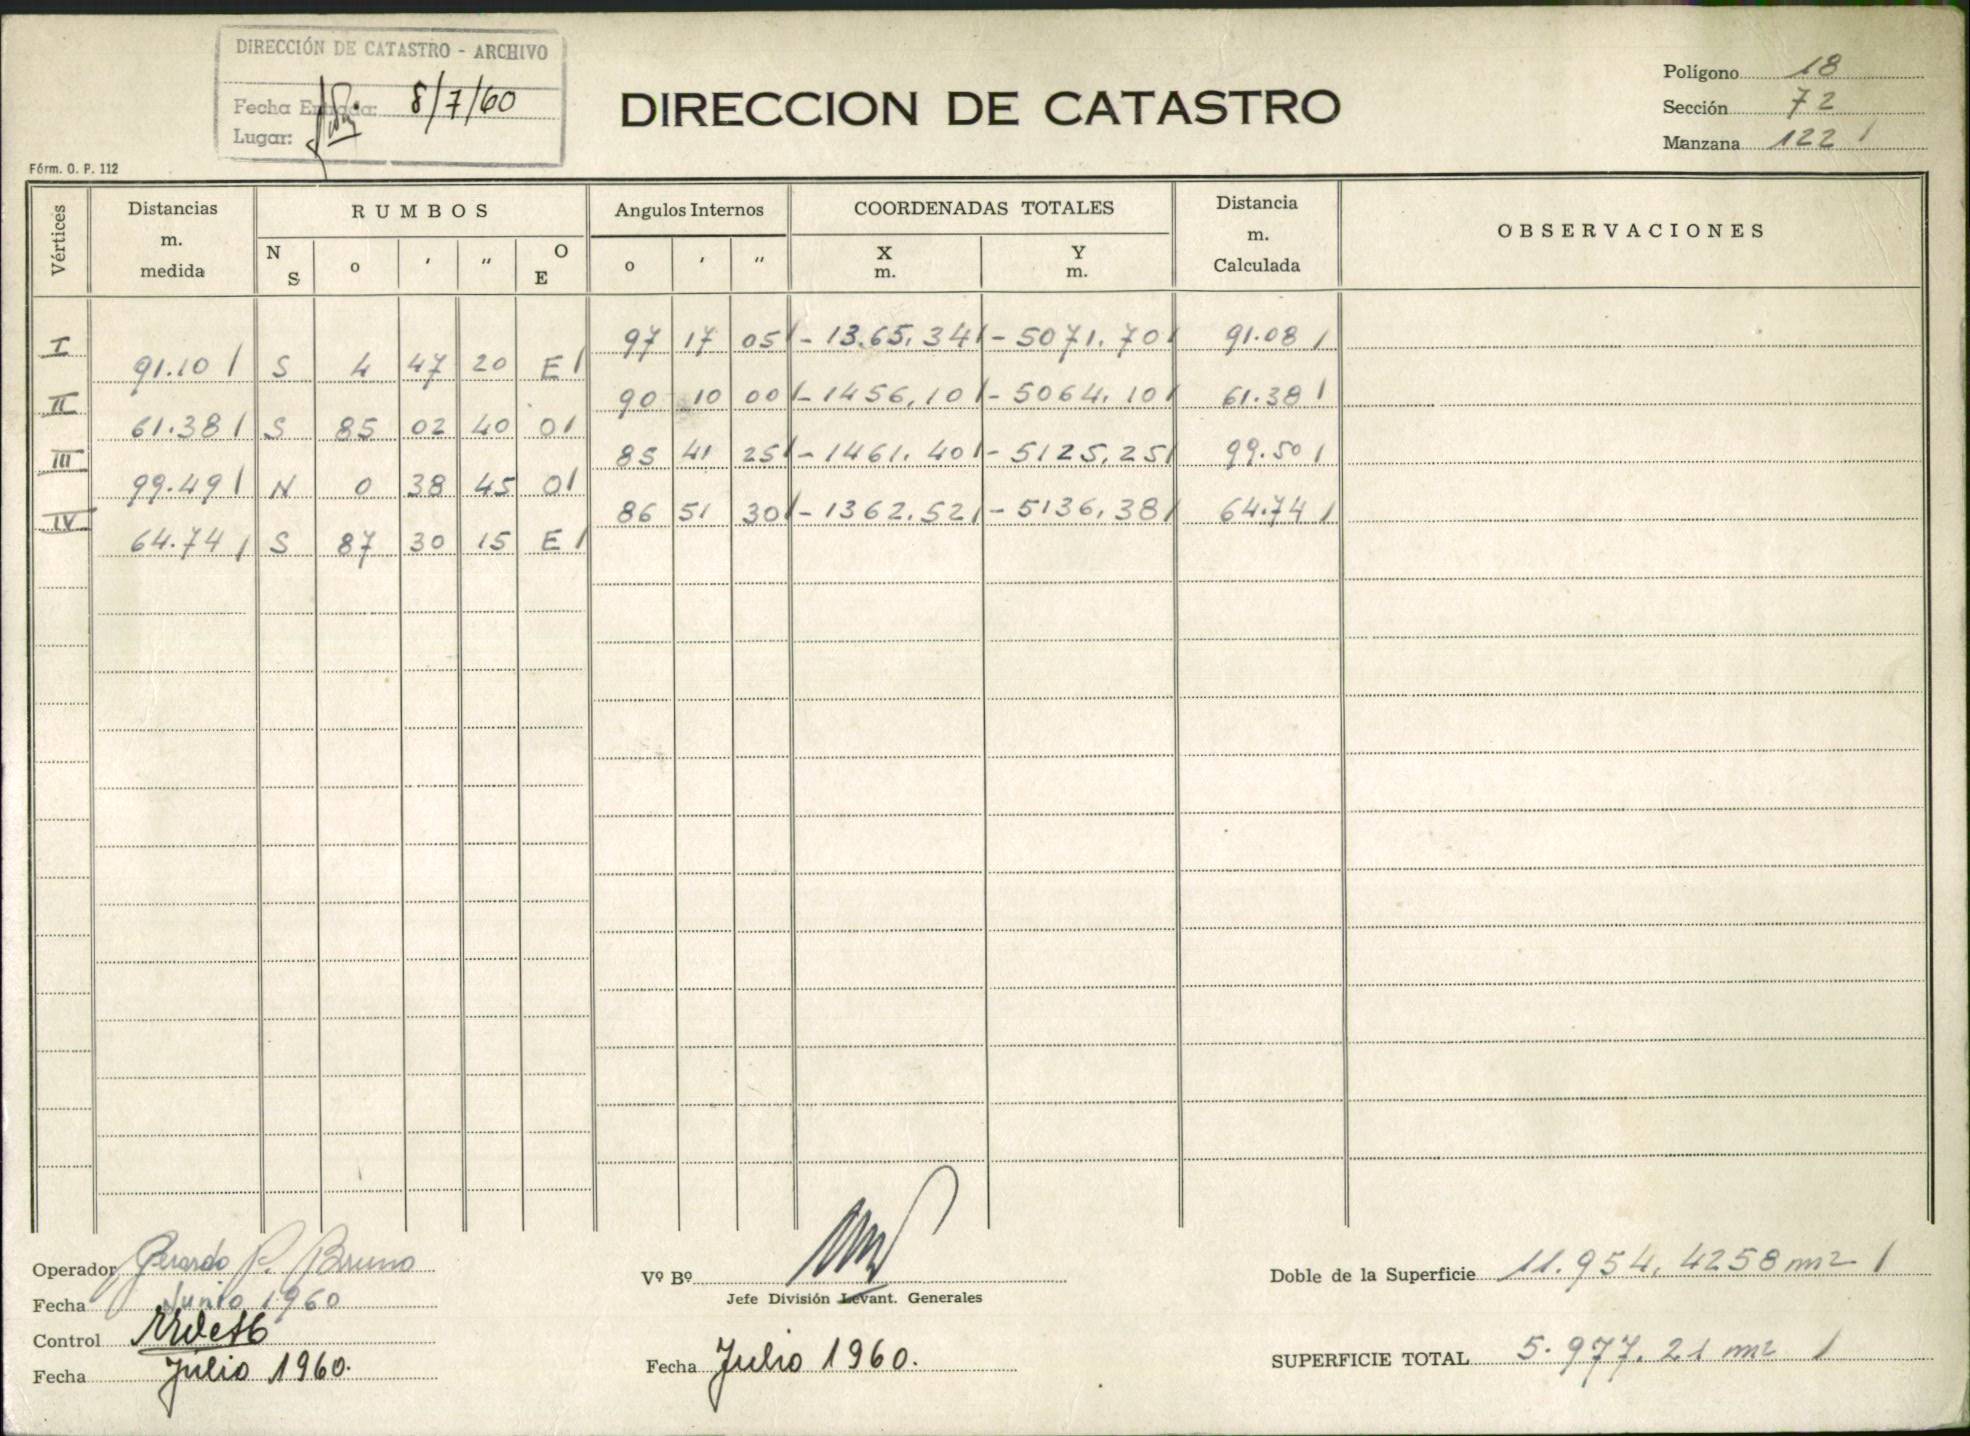 DIRECCIÓN DE CATASTRO - ARCHIVO
Fecha Entrada: 8/7/60
Lugar:
DIRECCION DE CATASTRO
Polígono 18
Sección 72
Manzana 122
Fórm. O. P. 112
Vértices
Distancias m. medida
RUMBOS
Angulos Internos
COORDENADAS TOTALES
Distancia m. Calculada
OBSERVACIONES
N S o ' " O E
o ' "
X m.
Y m.
I 97 17 05 - 13.65,34 - 5071.70 91.08
91.10 S 4 47 20 E
II 90 10 00 - 1456,10 - 5064,10 61.38
61.38 S 85 02 40 O
III 85 41 25 - 1461.40 - 5125,25 99.50
99.49 N 0 38 45 O
IV 86 51 30 - 1362.52 - 5136,38 64.74
64.74 S 87 30 15 E
Operador Gerardo P. Bruno
Fecha Junio 1960
Control
Fecha Julio 1960.
Vº Bº
Jefe División Levant. Generales
Fecha Julio 1960.
Doble de la Superficie 11.954,4258 m2
SUPERFICIE TOTAL 5.977.21 m2